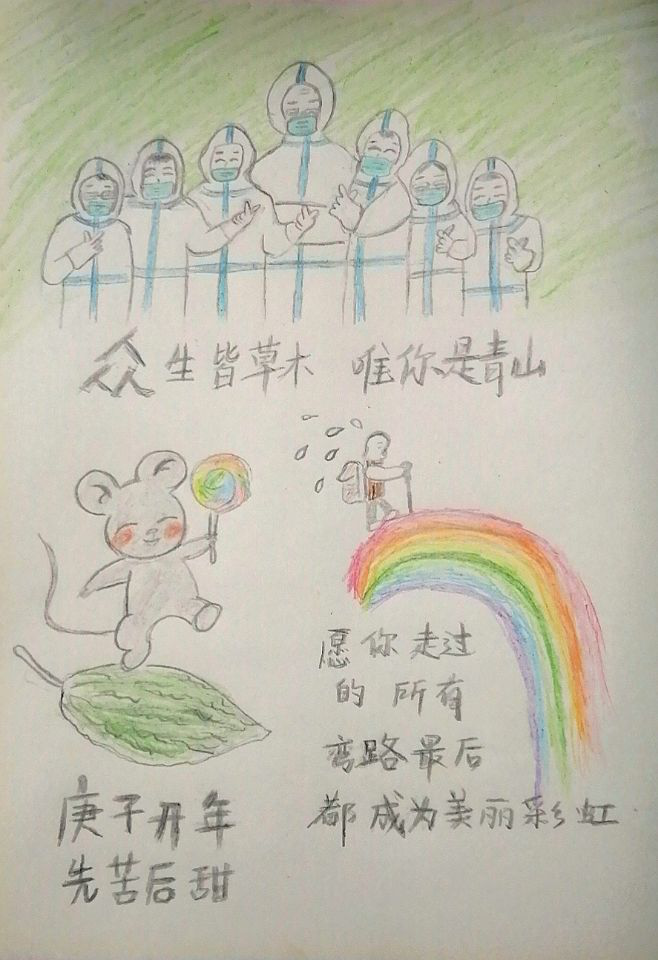 众生皆草木 唯你是青山
愿你走过
的所有
弯路最后
都成为美丽彩虹
庚子开年
先苦后甜